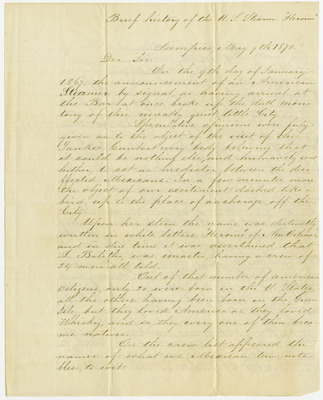 Brief history of the U. S. Steamer "Heroine"
Tampico May 9th 1870.
Dear Sir
On the 9th day of January
1867, the announcement of an American
Steamer by signal as having arrival at
the Bar hat once broke up the dull mono
tony of this usually quiet little City.
Speculative opinions were
given as to the object of the visit of the
Yankee Gunboat every body believing that
it could be nothing else, and
hither to act as mediator between the dis
affected Mexicans. In a few minutes more
the object of our excitement dashed like a
bird, up to the place of anchorage off the
City.
Upon her stern the name was distinctly
written in white letters Heroine of
and in due time it was ascertained that
L. was master having a crew of
24 men all told.
Out of that number of american
citizens, only 10 were born in the U States,
all the others having been born in the Green
Isle, but they loved America as they loved
Whisky, and so they every one of them beca
me natural
On the crew list appeared the
names of what we Mexican
bles to wit